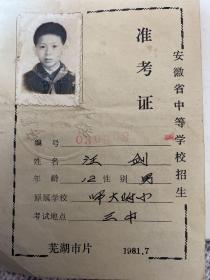 安徽省中等学校招生
准考证
编号
姓名 汪剑
年龄 12 性别 男
原属学校 师大附小
考试地点 三中
芜湖市片 1981.7